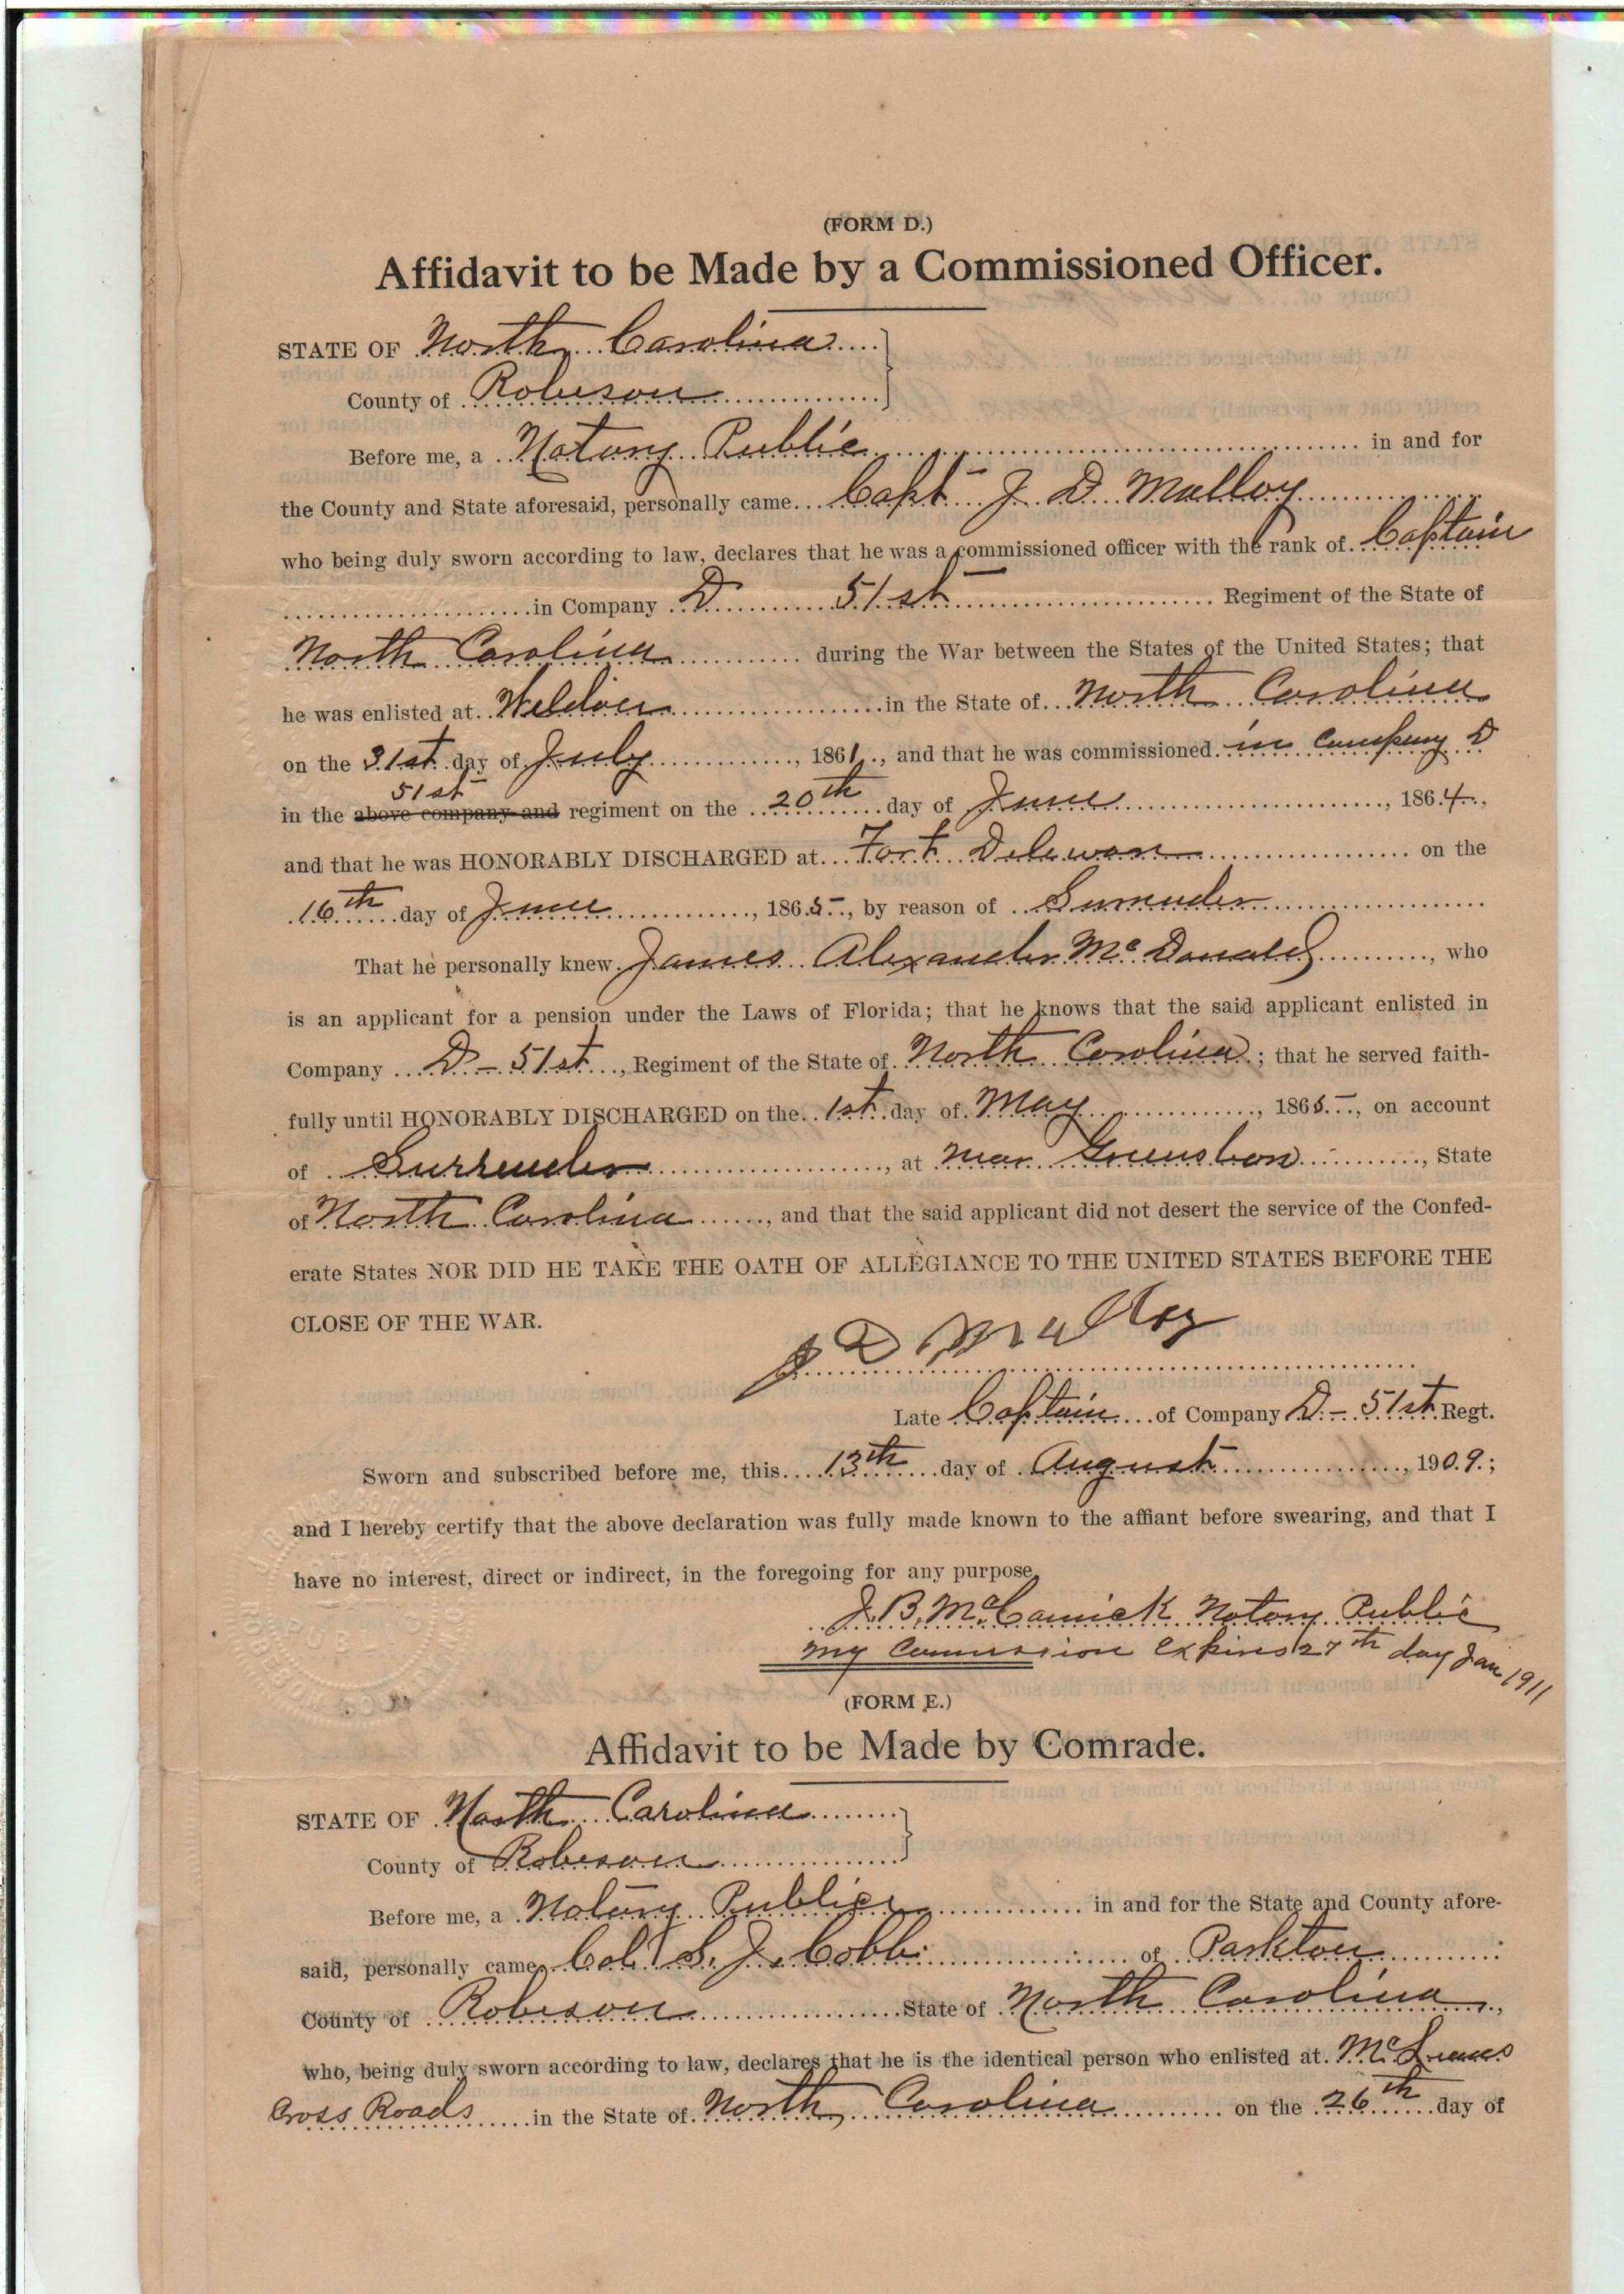 (FORM D.)
Affidavit to be Made by a Commissioned Officer.
STATE OF North Carolina
County of Robeson
Before me, a Notary Public in and for
the County and State aforesaid, personally came Capt J. D. Malloy
who being duly sworn according to law, declares that he was a commissioned officer with the rank of Captain
in Company D 51st Regiment of the State of
North Carolina during the War between the States of the United States; that
he was enlisted at Weldon in the State of North Carolina
on the 31st day of July, 1861, and that he was commissioned in Company D
51st
in the above company and regiment on the 20th day of June, 1864,
and that he was HONORABLY DISCHARGED at Fort Deleware on the
16th day of June, 1865, by reason of Surrender
That he personally knew James Alexander McDonald, who
is an applicant for a pension under the Laws of Florida; that he knows that the said applicant enlisted in
Company D - 51st, Regiment of the State of North Carolina; that he served faith-
fully until HONORABLY DISCHARGED on the 1st day of May, 1865, on account
of Surrender, at near Greensboro, State
of North Carolina, and that the said applicant did not desert the service of the Confed-
erate States NOR DID HE TAKE THE OATH OF ALLEGIANCE TO THE UNITED STATES BEFORE THE
CLOSE OF THE WAR.
J D Malloy
Late Captain of Company D - 51st Regt.
Sworn and subscribed before me, this 13th day of August, 1909;
and I hereby certify that the above declaration was fully made known to the affiant before swearing, and that I
have no interest, direct or indirect, in the foregoing for any purpose
J. B. McCormick Notary Public
My Commission expires 27th day Jan 1911
(FORM E.)
Affidavit to be Made by Comrade.
STATE OF North Carolina
County of Robeson
Before me, a Notary Public in and for the State and County afore-
said, personally came Col S. J. Cobb of Parkton
County of Robeson State of North Carolina,
who, being duly sworn according to law, declares that he is the identical person who enlisted at
Cross Roads in the State of North Carolina on the 26th day of